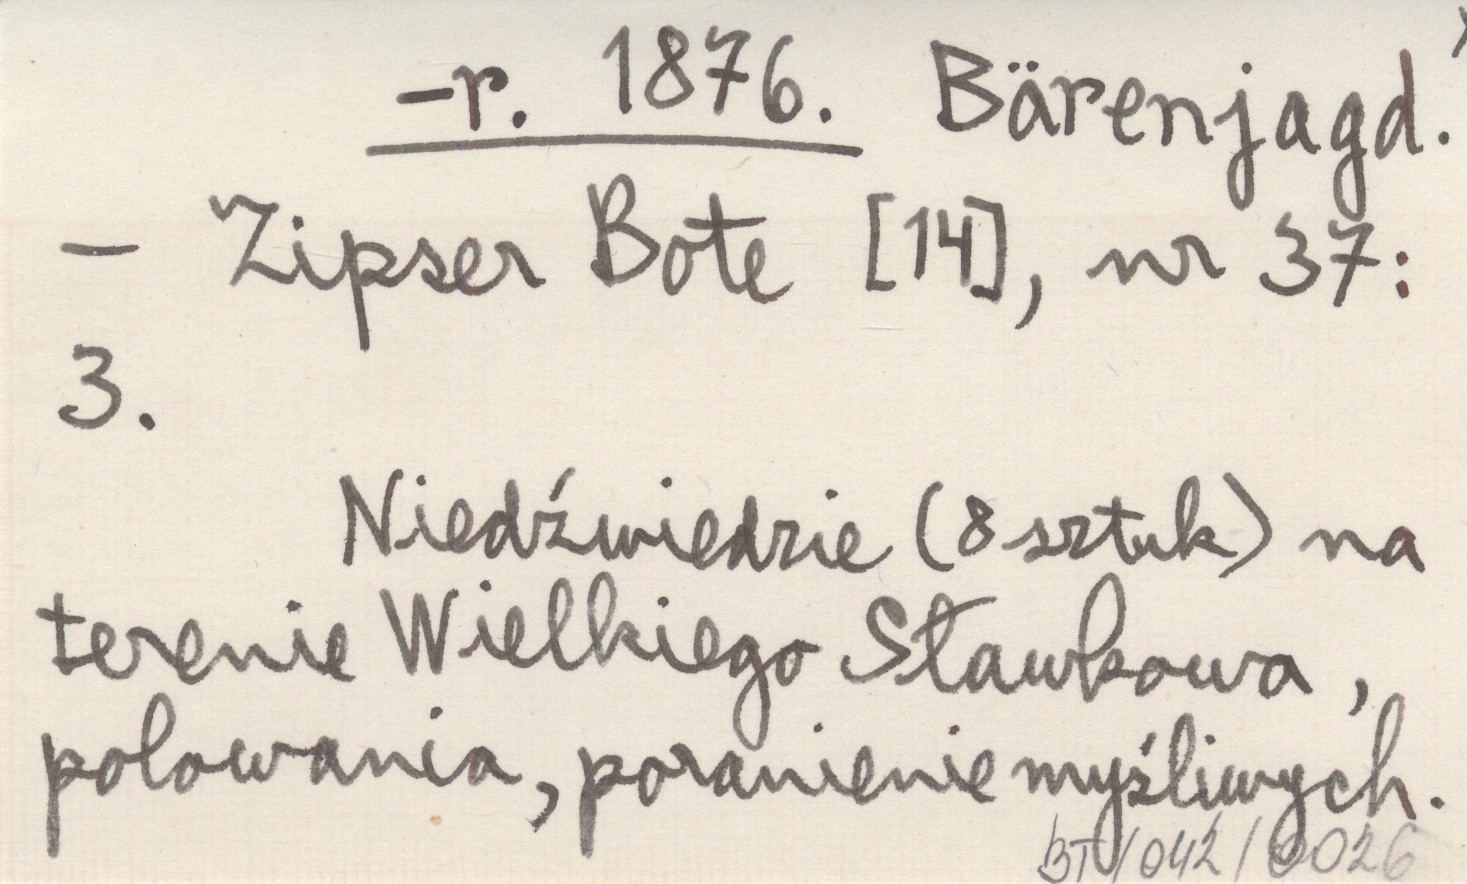 -r. 1876. Bärenjagd.
– Zipser Bote [14], nr 37:
3.
Niedźwiedzie (8 sztuk) na
terenie Wielkiego Sławkowa,
polowania, poranienie myśliwych.
BT/042/0026